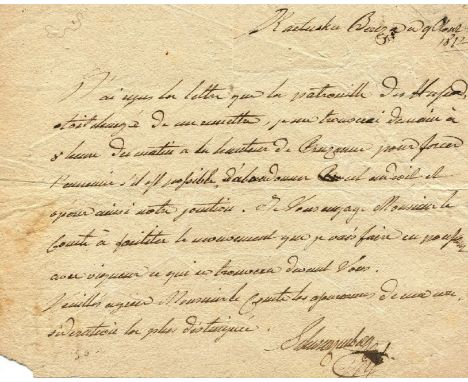 Kartuska Bereza ce 9 Aout
1812
J'ai reçu la lettre que la patrouille des
etoit chargé de me remettre, je me trouverai demain à
8 heures du matin a la hauteur de Pruzanna pour forcer
l'ennemi s'il est possible, d'abandonner cet endroit et
ainsi notre position. Je Vous engage Monsieur le
Comte à faciliter le mouvement que je vais faire en
avec vigueur ce qui se trouvera devant Vous.
Veuillez agréer Monsieur le Comte les assurances de ma con
sideration la plus distinguée.
Schwarzenberg